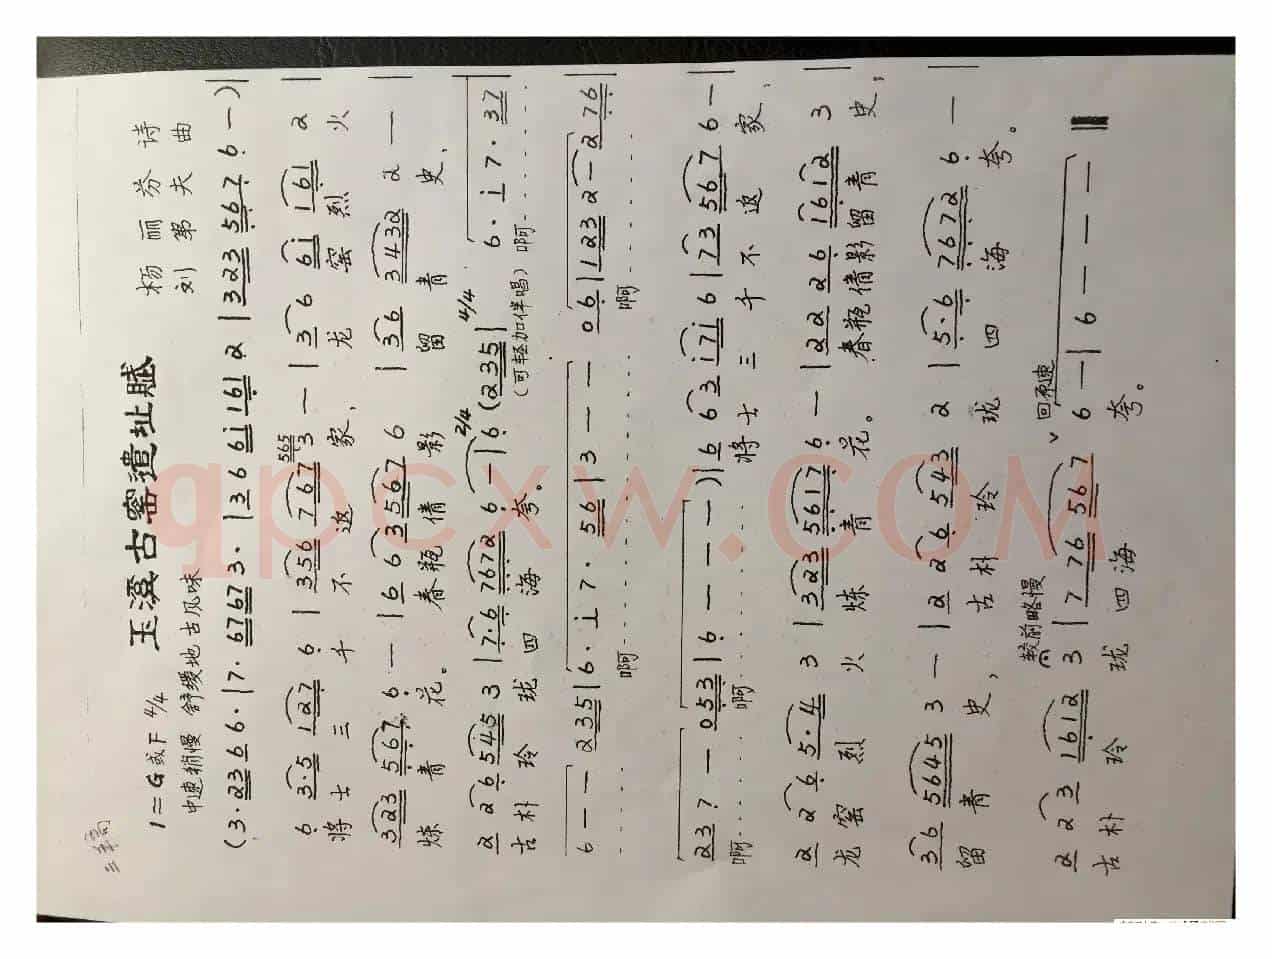 玉溪古窑遗址赋
1=G或F 4/4
中速稍慢 舒缓地 古风味
杨丽芬 诗
刘第夫 曲
(3·2366·|7·67673·|366i1612|3235676—)|
63·51276|3567673—|366i1612|
将士三千不返家,龙窑烈火
32355676—|6635676|3634322—|
炼青花。春瓶倩影留青史,
22654533|7·676726—|6(235|6·i7·37
2/4
4/4
古朴玲珑四海夸。(可轻加伴唱)啊
6——235|6·i7·56|3———06|1232—276|
啊
啊
237—053|6————)|663i7i6|735676—|
啊
啊
将士三千不返家,
2265·43|32356176—|222616123|
龙窑烈火炼青花。春瓶倩影留青史,
3656453—|2265432|5·6767 26—|
留青史,古朴玲珑四海夸。
较前略慢
回原速
22316123|7765676—|6———
古朴玲珑四海夸。
qpcxw.com